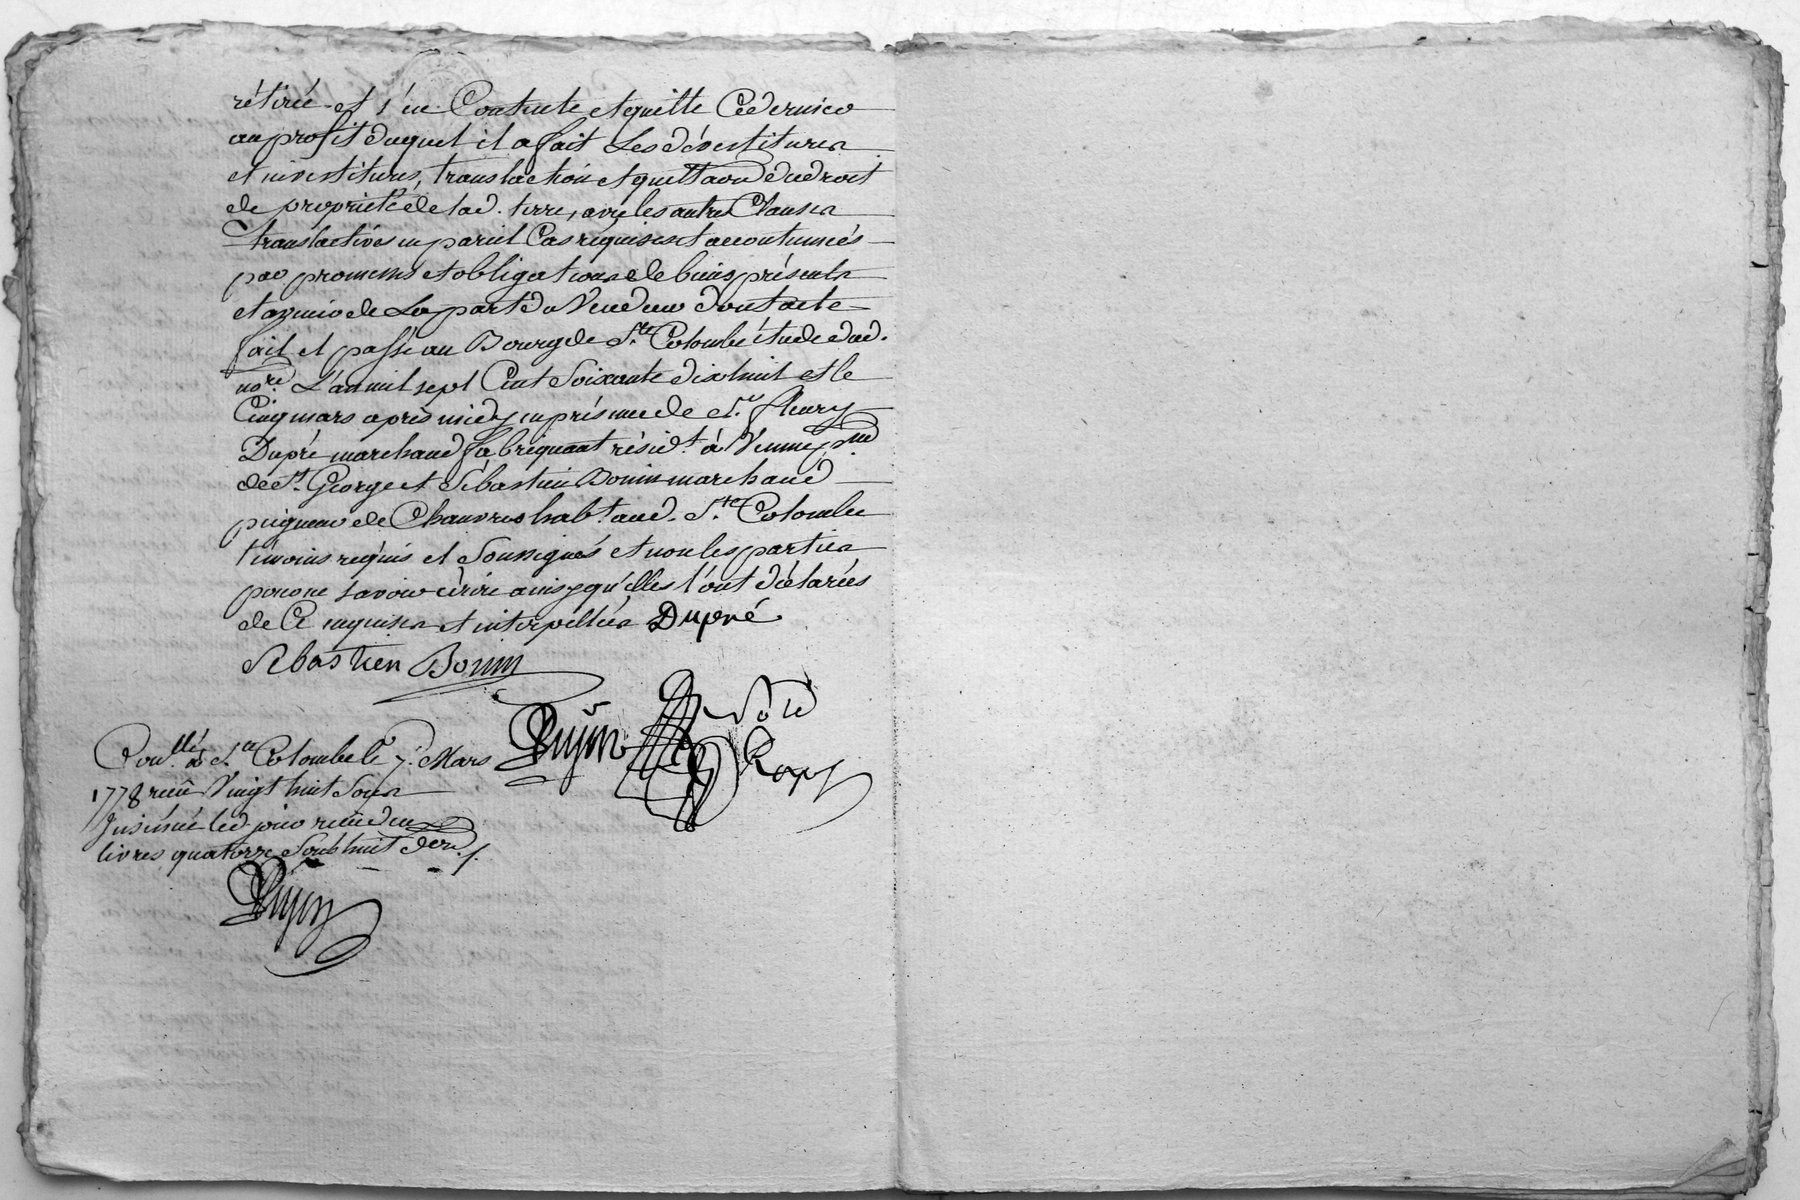 rétirée et s'en Contente et quitte Ce dernier
au profit duquel il a fait Les dévestitures
et investitures, translaction et quittance du droit
de propriété de lad. terre, avec les autres Clauses
translactives en pareil Cas réquises et accoutumées
par promesses et obligations de biens présents
et avenir de La part du Vendeur dont acte
fait et passé au Bourg de Ste Colombe étude dud.
nore. L'an mil sept Cent Soixante dix huit et le
Cinq mars après midy en présence de sr. fleury
Dupré marchand fabriquant résidt. à Vienne
de St. George et Sébastien Bonin marchand
peigneur de Chanvres habt. aud. Ste Colombe
témoins requis et Soussignés et non les parties
pour ne savoir écrire ainsy qu'elles l'ont déclarées
de Ce enquises et interpellées Dupré
Sebastien Bonin
Conllé à Ste Colombe le 7e. Mars
1778 reçu Vingt huit Sous
Insinué led. jour reçu
livres quatorze Sous huit den.